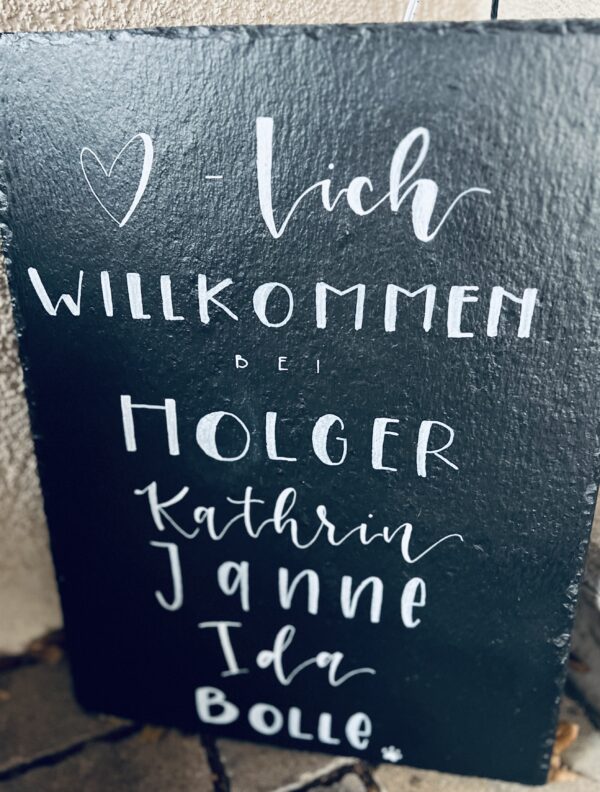 ♡-lich
WILLKOMMEN
BEI
HOLGER
Kathrin
Janne
Ida
BOLLE